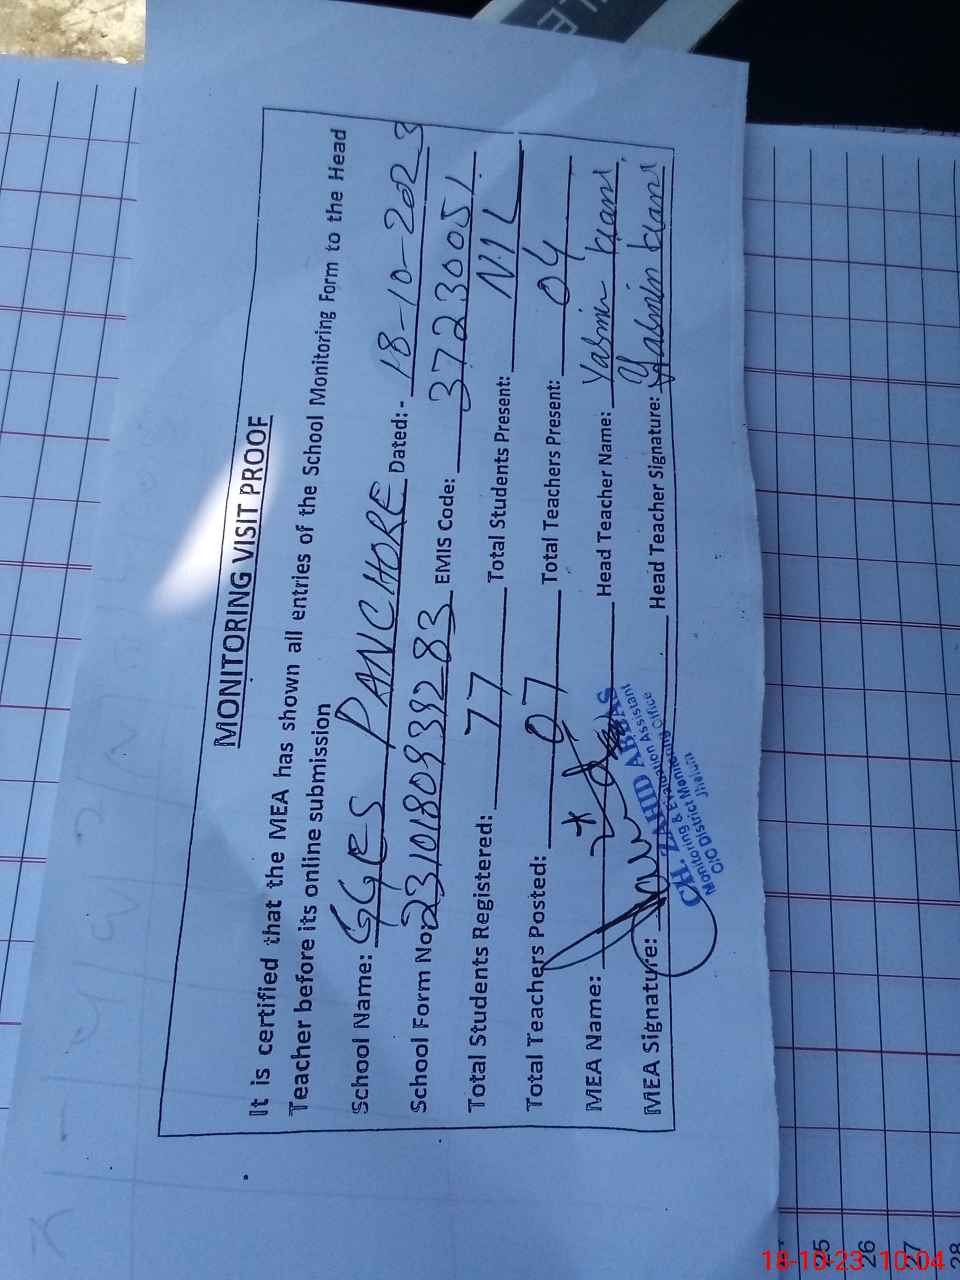 MONITORING VISIT PROOF
It is certified that the MEA has shown all entries of the School Monitoring Form to the Head
Teacher before its online submission
School Name: GGES PANCHORE Dated:- 18-10-2023
School Form No: EMIS Code: 37230051
Total Students Registered: 77 Total Students Present: NIL
Total Teachers Posted: 07 Total Teachers Present: 04
MEA Name: Head Teacher Name: Yasmin
MEA Signature: Head Teacher Signature: Yasmin
CH. ZAHID ABBAS
Monitoring & Evaluation Assistant
C/O District Monitoring Office
Jhelum
25
26
27
28
18-10-23 10:04